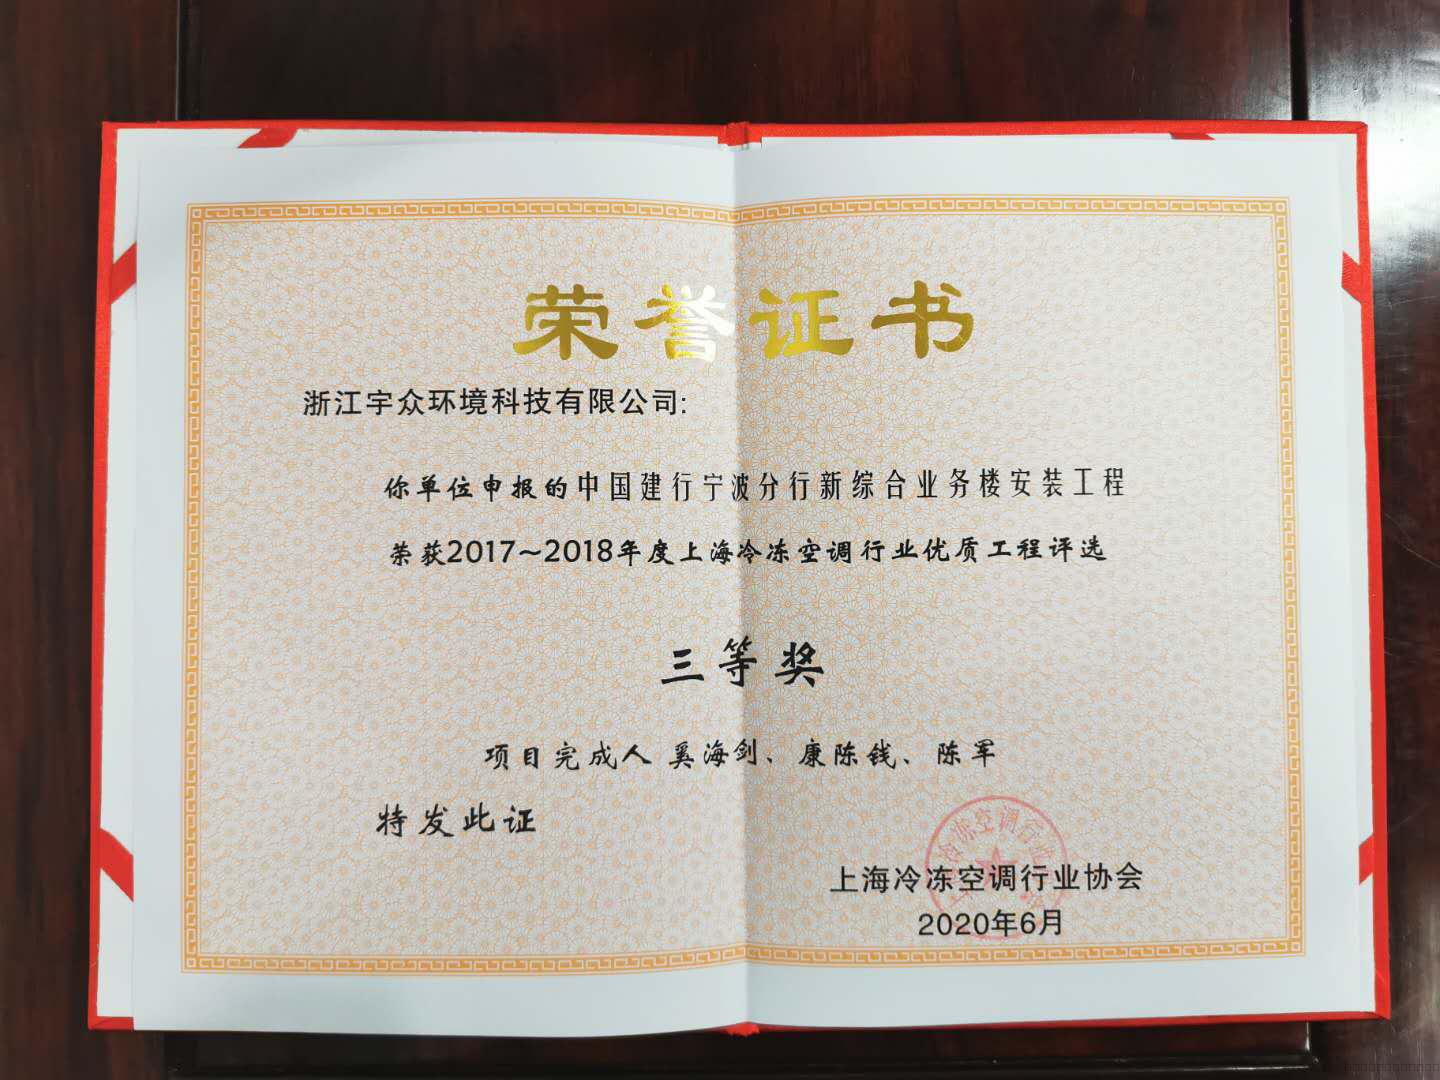 荣誉证书
浙江宇众环境科技有限公司:
你单位申报的中国建行宁波分行新综合业务楼安装工程
荣获2017~2018年度上海冷冻空调行业优质工程评选
三等奖
项目完成人 奚海剑、康陈钱、陈军
特发此证
冷冻空调行业
上海冷冻空调行业协会
2020年6月